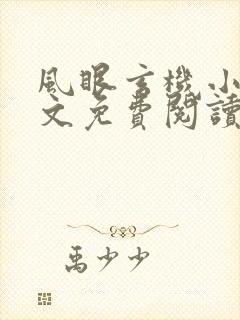 風眼玄機小
文免費閱讀
禹少少